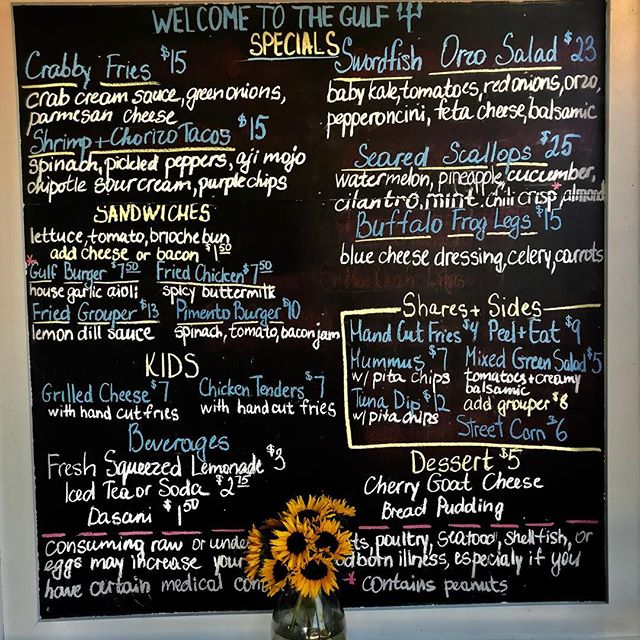 WELCOME TO THE GULF
SPECIALS
Crabby Fries $15
crab cream sauce, green onions,
parmesan cheese
Shrimp + Chorizo Tacos $15
spinach, pickled peppers, aji mojo
chipotle sour cream, purple chips
Swordfish Orzo Salad $23
baby kale, tomatoes, red onions, orzo,
pepperoncini, feta cheese, balsamic
Seared Scallops $25
watermelon, pineapple, cucumber,
cilantro, mint, chili crisp*, almond
Buffalo Frog Legs $15
blue cheese dressing, celery, carrots
SANDWICHES
lettuce, tomato, brioche bun
add cheese or bacon $1.50
*Gulf Burger $7.50 Fried Chicken $7.50
house garlic aioli spicy buttermilk
Fried Grouper $13 Pimento Burger $10
lemon dill sauce spinach, tomato, bacon jam
KIDS
Grilled Cheese $7 Chicken Tenders $7
with hand cut fries with hand cut fries
Beverages
Fresh Squeezed Lemonade $3
Iced Tea or Soda $2.75
Dasani $1.50
Shares + Sides
Hand Cut Fries $4 Peel + Eat $9
Hummus $7 Mixed Green Salad $5
w/ pita chips tomatoes + creamy
balsamic
Tuna Dip $12 add grouper $8
w/ pita chips Street Corn $6
Dessert $5
Cherry Goat Cheese
Bread Pudding
consuming raw or unde ts poultry, seafood, shellfish, or
eggs may increase your odborn illness, especialy if you
have certain medical con * contains peanuts